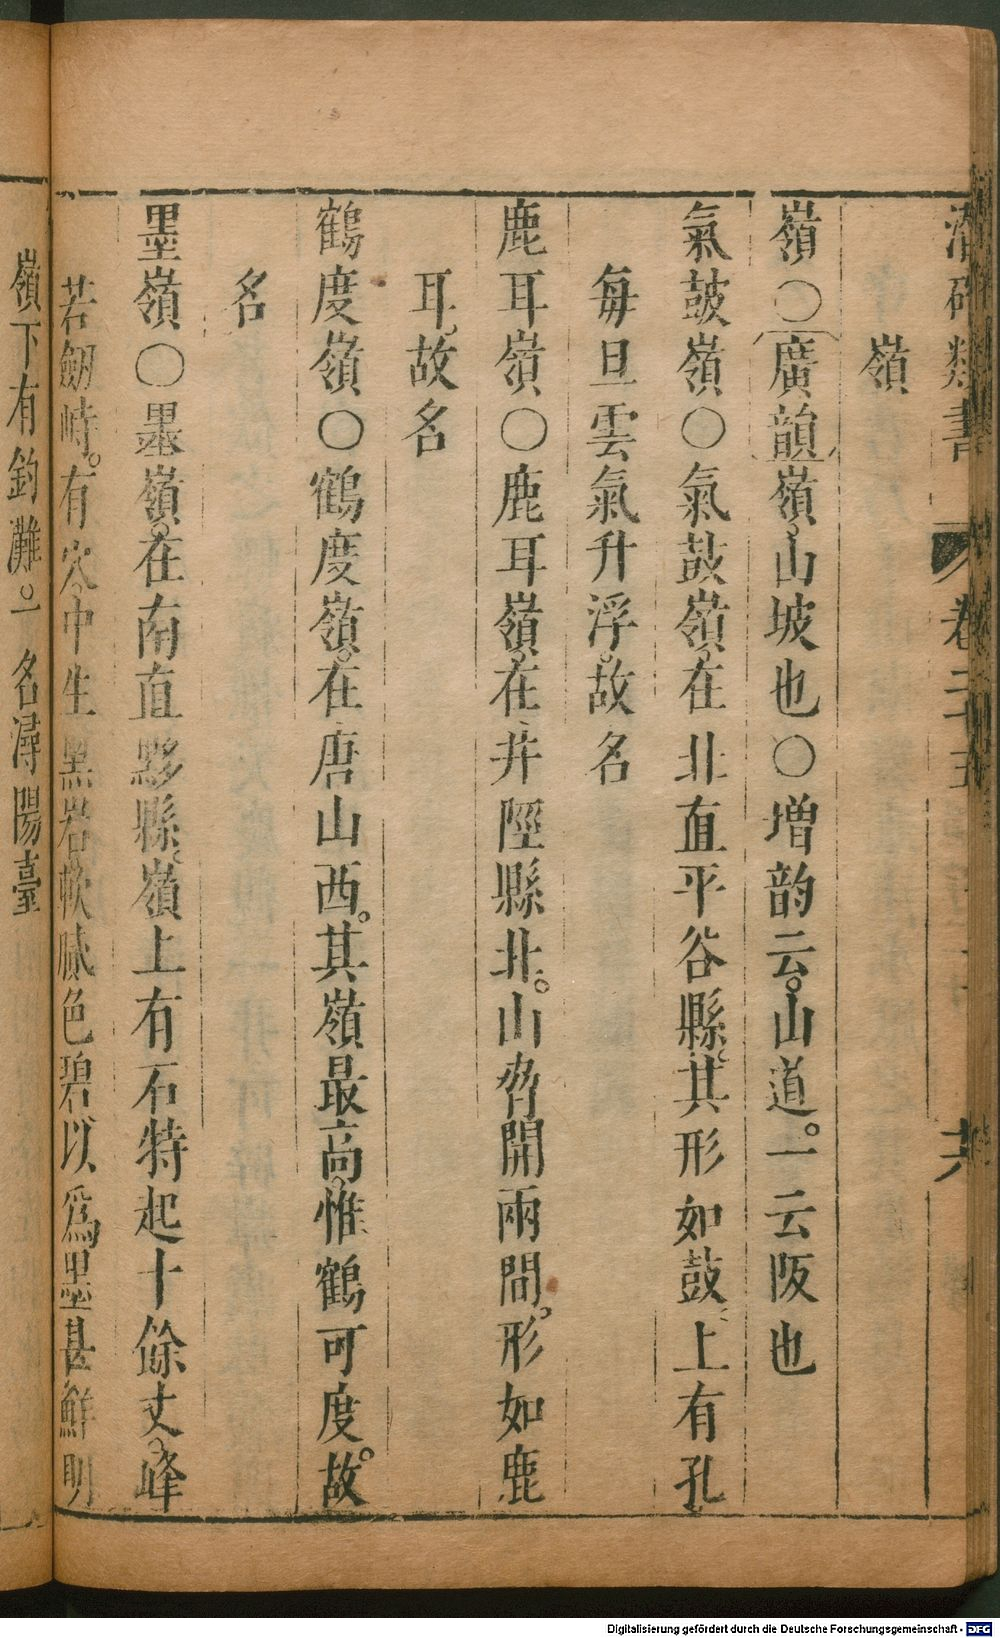 潛確類書 卷二十五 共
嶺
嶺○廣韻嶺山坡也○增韵云山道一云阪也
氣皷嶺○氣鼓嶺在北直平谷縣其形如鼓上有孔
每旦雲氣升浮故名
鹿耳嶺○鹿耳嶺在井陘縣北山脊開兩間形如鹿
耳故名
鶴度嶺○鶴度嶺在唐山西其嶺最高惟鶴可度故
名
墨嶺○墨嶺在南直黟縣嶺上有石特起十餘丈峰
若劒峙有穴中生黑岩軟膩色碧以爲墨甚鮮明
嶺下有釣灘一名潯陽臺
Digitalisierung gefördert durch die Deutsche Forschungsgemeinschaft - DFG